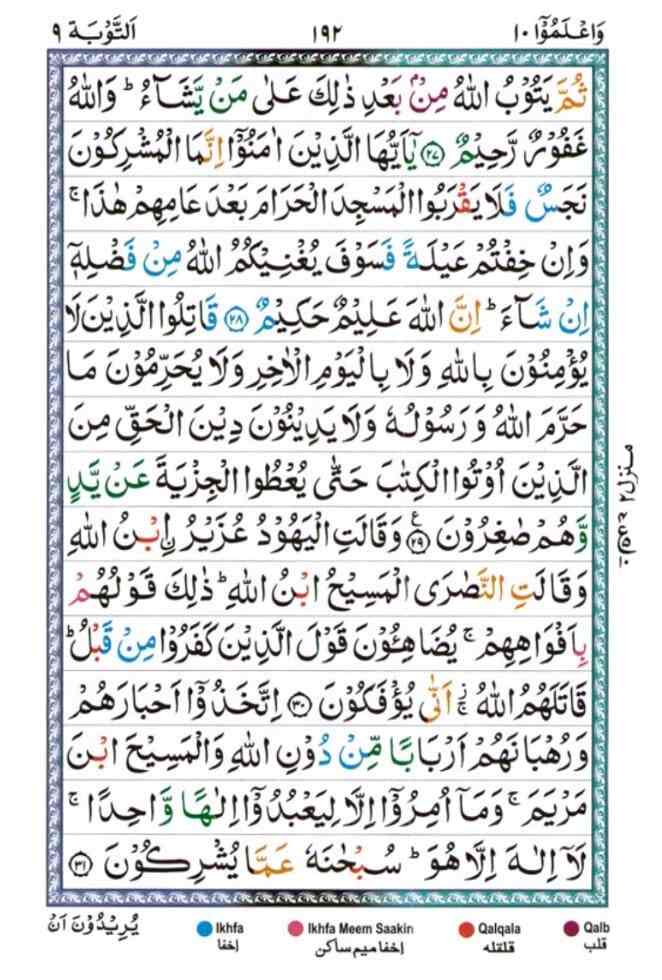 وَاعْلَمُوْٓا ١٠
١٩٢
اَلتَّوْبَة ٩
ثُمَّ يَتُوْبُ اللهُ مِنْۢ بَعْدِ ذٰلِكَ عَلٰى مَنْ يَّشَآءُ ؕ وَاللهُ
غَفُوْرٌ رَّحِيْمٌ ﴿٢٧﴾ يٰٓاَيُّهَا الَّذِيْنَ اٰمَنُوْٓا اِنَّمَا الْمُشْرِكُوْنَ
نَجَسٌ فَلَا يَقْرَبُوا الْمَسْجِدَ الْحَرَامَ بَعْدَ عَامِهِمْ هٰذَا ۚ
وَاِنْ خِفْتُمْ عَيْلَةً فَسَوْفَ يُغْنِيْكُمُ اللهُ مِنْ فَضْلِهٖٓ
اِنْ شَآءَ ؕ اِنَّ اللهَ عَلِيْمٌ حَكِيْمٌ ﴿٢٨﴾ قَاتِلُوا الَّذِيْنَ لَا
يُؤْمِنُوْنَ بِاللهِ وَلَا بِالْيَوْمِ الْاٰخِرِ وَلَا يُحَرِّمُوْنَ مَا
حَرَّمَ اللهُ وَرَسُوْلُهٗ وَلَا يَدِيْنُوْنَ دِيْنَ الْحَقِّ مِنَ
الَّذِيْنَ اُوْتُوا الْكِتٰبَ حَتّٰى يُعْطُوا الْجِزْيَةَ عَنْ يَّدٍ
وَّهُمْ صٰغِرُوْنَ ﴿٢٩﴾ ع وَقَالَتِ الْيَهُوْدُ عُزَيْرُ ۨابْنُ اللهِ
وَقَالَتِ النَّصٰرَى الْمَسِيْحُ ابْنُ اللهِ ؕ ذٰلِكَ قَوْلُهُمْ
بِاَفْوَاهِهِمْ ۚ يُضَاهِـُٔوْنَ قَوْلَ الَّذِيْنَ كَفَرُوْا مِنْ قَبْلُ ؕ
قَاتَلَهُمُ اللهُ ۚ اَنّٰى يُؤْفَكُوْنَ ﴿٣٠﴾ اِتَّخَذُوْٓا اَحْبَارَهُمْ
وَرُهْبَانَهُمْ اَرْبَابًا مِّنْ دُوْنِ اللهِ وَالْمَسِيْحَ ابْنَ
مَرْيَمَ ۚ وَمَآ اُمِرُوْٓا اِلَّا لِيَعْبُدُوْٓا اِلٰهًا وَّاحِدًا ۚ
لَآ اِلٰهَ اِلَّا هُوَ ؕ سُبْحٰنَهٗ عَمَّا يُشْرِكُوْنَ ﴿٣١﴾
منزل ٢
يُرِيْدُوْنَ اَنْ
Ikhfa
اِخفا
Ikhfa Meem Saakin
اِخفا میم ساکن
Qalqala
قلقلہ
Qalb
قلب